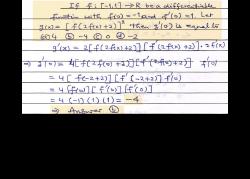 If f: [-1,1] → R be a differentiable
function with f(0) = -1 and f'(0) = 1. Let
g(x) = [f(2f(x)+2)]² then g'(0) is equal to
(a) 4 (b) -4 (c) 0 (d) -2
g'(x) = 2[f(2f(x)+2)] [f'(2f(x)+2)] · 2f'(x)
⇒ g'(0) = 4[f(2f(0)+2)] [f'(2f(0)+2)] f'(0)
= 4[f(-2+2)] [f'(-2+2)] f'(0)
= 4[f(0)] [f'(0)] f'(0)]
= 4 (-1) (1) (1) = -4
⇒ Answer (b)